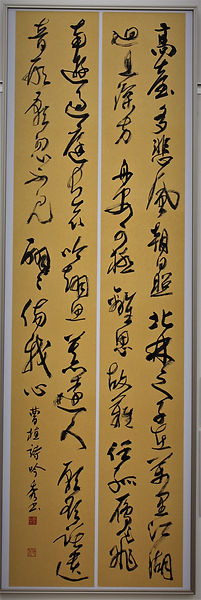 高臺多悲風朝日照北林之子在萬里江湖
迥且深方舟安可極離思故難任孤雁飛
南遊過庭長哀吟翹思慕遠人願欲託遺
音形影忽不見翩々傷我心
曹植詩吟秀書